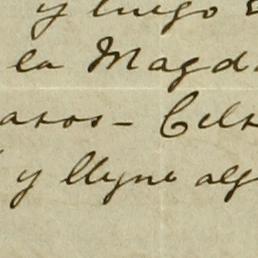 y luego
la Magd
asos - Cels
y llegué alg